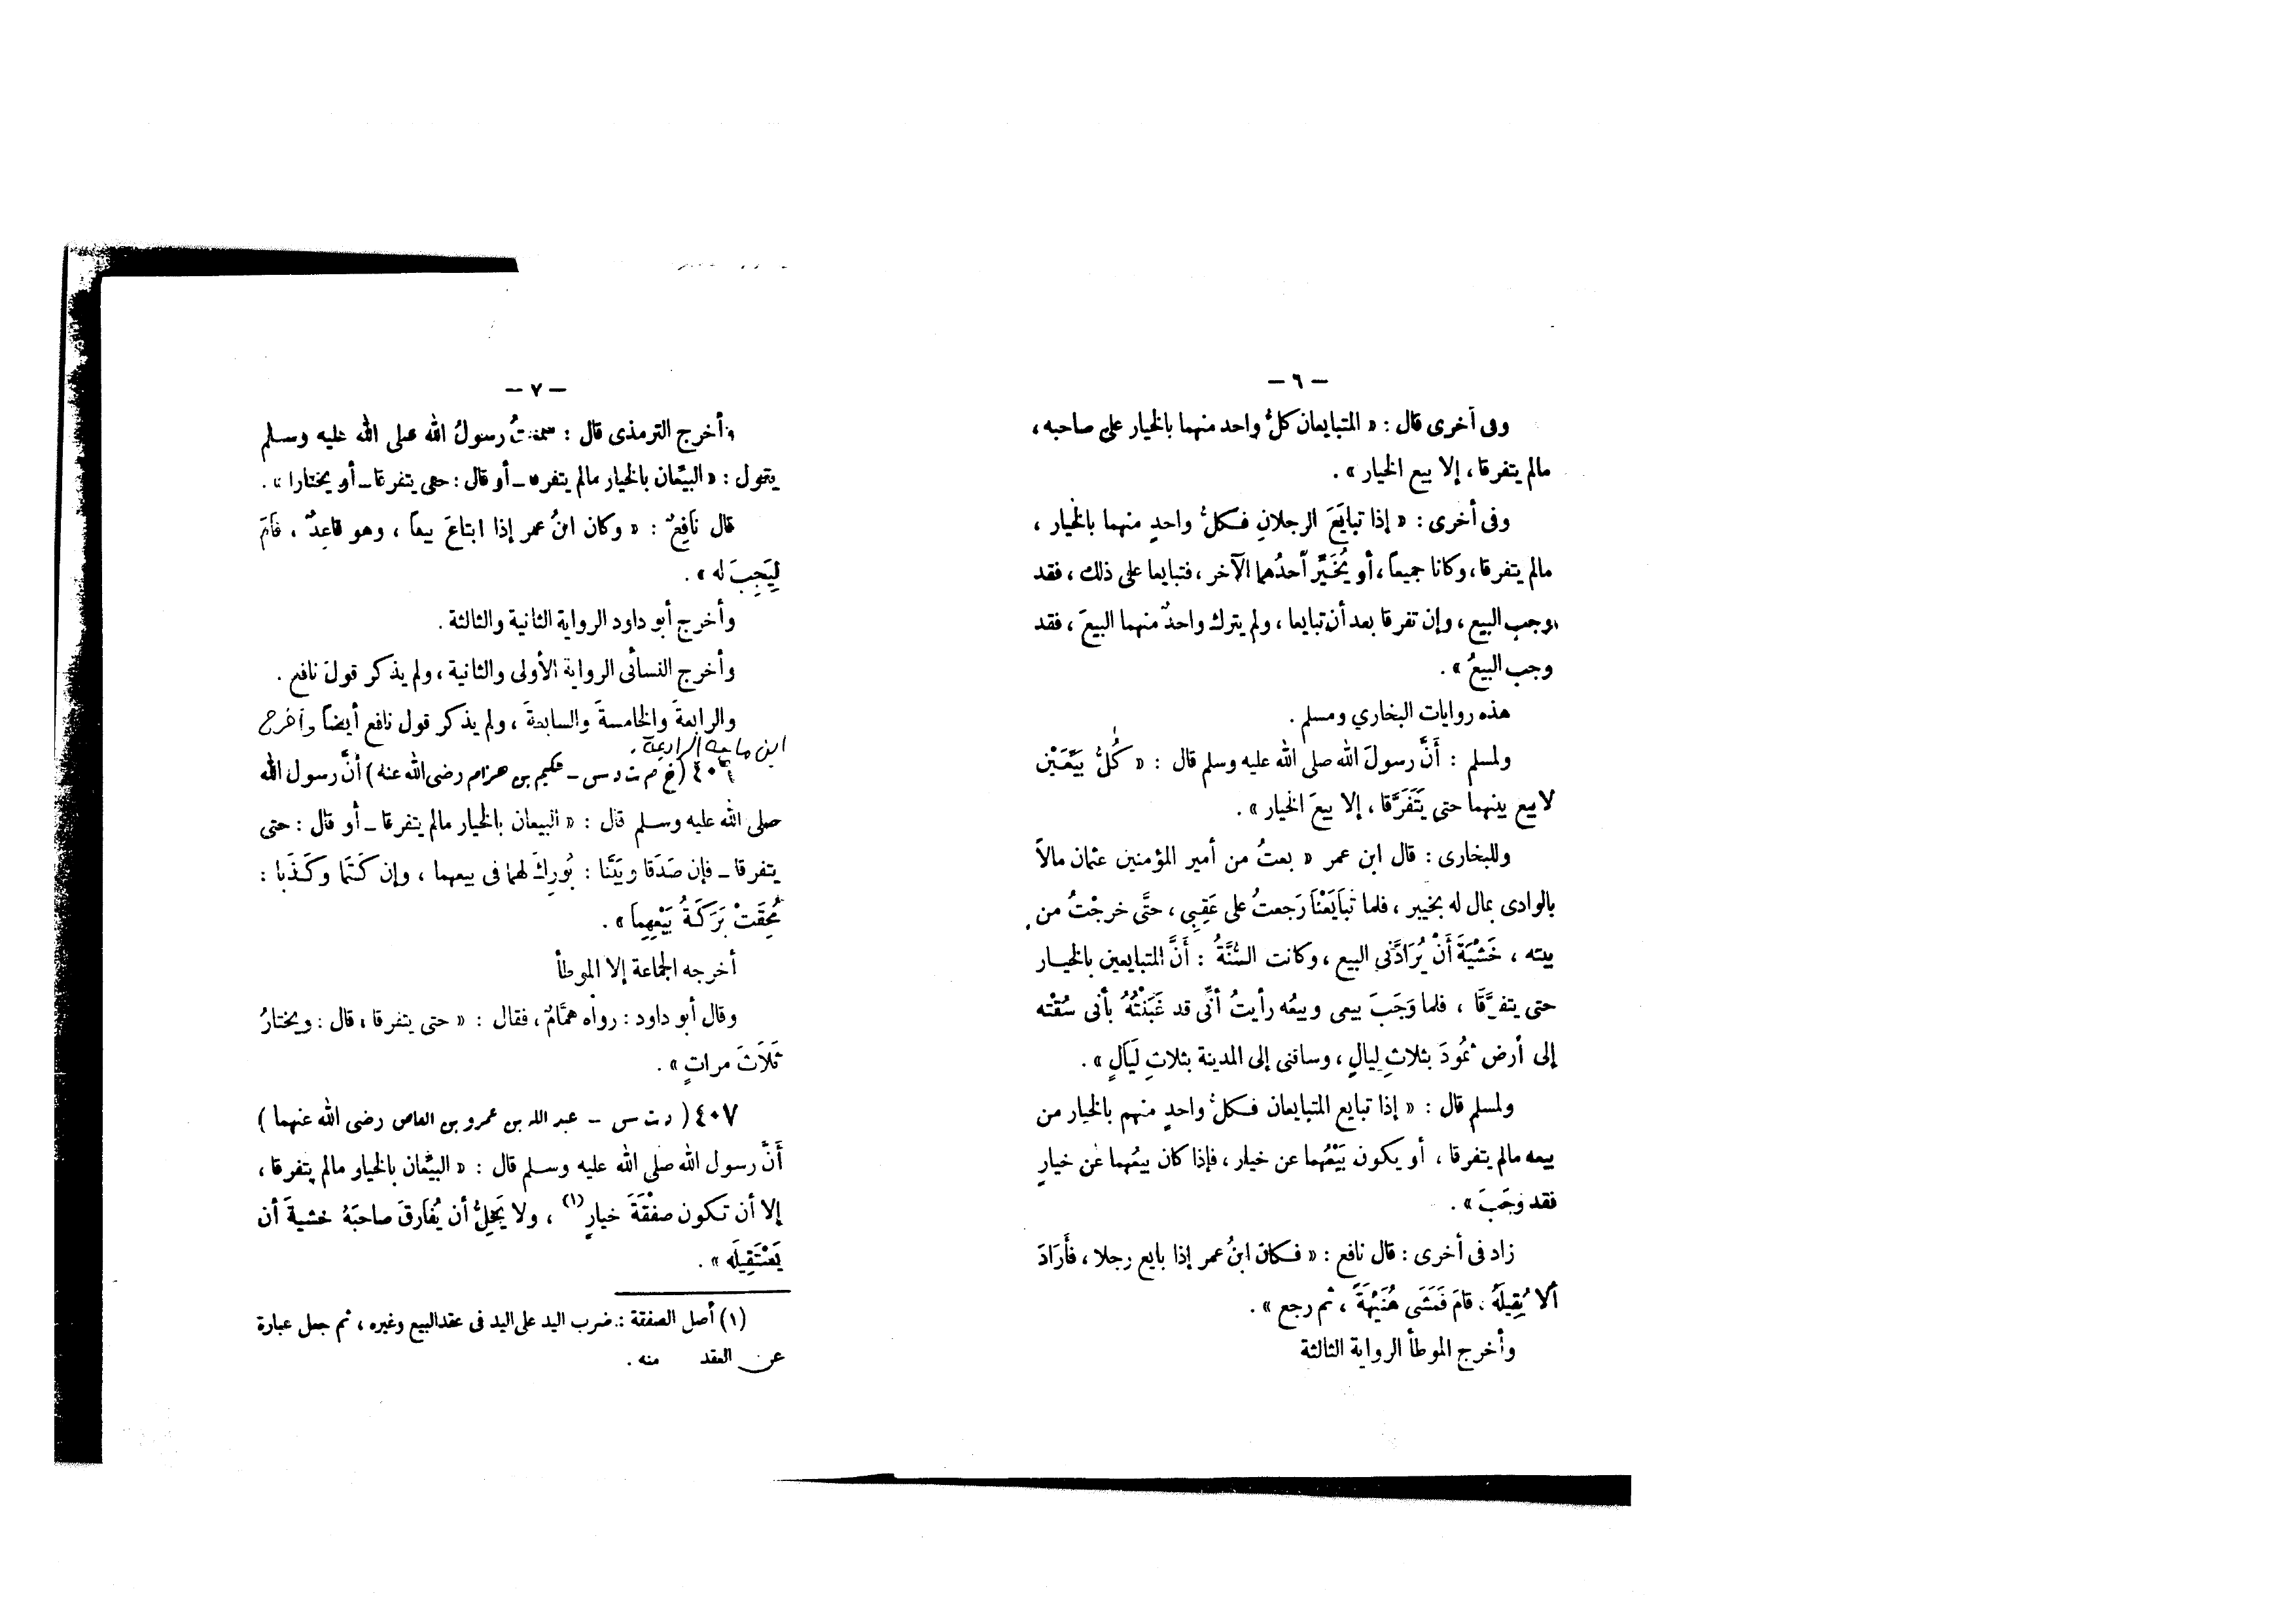 — ٦ —
وفى أخرى قال : « المتبايعان كلُّ واحد منهما بالخيار على صاحبه ،
مالم يتفرقا ، إلا بيع الخيار » .
وفى أخرى : « إذا تبايَعَ الرجلانِ فكلُّ واحدٍ منهما بالخيار ،
مالم يتفرقا ، وكانا جميعاً ، أو يُخَيِّر أحدُهما الآخر ، فتبايعا على ذلك ، فقد
وجب البيع ، وإن تفرقا بعد أن تبايعا ، ولم يترك واحدٌ منهما البيعَ ، فقد
وجب البيعُ » .
هذه روايات البخاري ومسلم .
ولمسلم : أَنَّ رسولَ الله صلى الله عليه وسلم قال : « كُلُّ بَيِّعَيْن
لابيع بينهما حتى يَتَفَرَّقا ، إلا بيعَ الخيار » .
وللبخارى : قال ابن عمر « بعتُ من أمير المؤمنين عثمان مالاً
بالوادى بمال له بخيبر ، فلما تَبَايَعْنَا رَجعتُ على عَقِبِي ، حتَّى خرجْتُ من
بيته ، خَشْيَةَ أَنْ يُرَادَّنى البيع ، وكانت السُّنَّةُ : أَنَّ المتبايعين بالخيار
حتى يتفرَّقَا ، فلما وَجَبَ بيعى وبيعُه رأيتُ أنِّى قد غَبَنْتُهُ بأنى سُقْته
إلى أرض ثمُودَ بثلاثِ ليالٍ ، وساقنى إلى المدينة بثلاثِ لَيَالٍ » .
ولمسلم قال : « إذا تبايع المتبايعان فكلُّ واحدٍ منهم بالخيار من
بيعه مالم يتفرقا ، أو يكون بَيْعُهما عن خيار ، فإذا كان بيعُهما عن خيارٍ
فقد وَجَبَ » .
زاد فى أخرى : قال نافع : « فكان ابنُ عمر إذا بايع رجلا ، فأَرَادَ
ألا يُقِيلَهُ ، قامَ فَمَشَى هُنَيْهَةً ، ثم رجع » .
وأخرج الموطأ الرواية الثالثة
— ٧ —
وأخرج الترمذى قال : سمعتُ رسولُ الله صلى الله عليه وسلم
يقول : « البيِّعان بالخيار مالم يتفرقا – أو قال : حتى يتفرقا – أو يختارا » .
قال نَافِعٌ : « وكان ابنُ عمر إذا ابتاعَ بيعاً ، وهو قاعِدٌ ، قَامَ
لِيَجِبَ له » .
وأخرج أبو داود الرواية الثانية والثالثة .
وأخرج النسائى الرواية الأولى والثانية ، ولم يذكر قولَ نافع .
والرابعةَ والخامسةَ والسابعةَ ، ولم يذكر قول نافع أيضاً وأخرج
ابن ماجه الرابعة .
٤٠٦ ( خ م ت د س – حكيم بن حزام رضى الله عنه ) أنَّ رسول الله
صلى الله عليه وسلم قال : « البيعان بالخيار مالم يتفرقا – أو قال : حتى
يتفرقا – فإن صَدَقا وبَيَّنَا : بُورِكَ لهما فى بيعهما ، وإن كَتَمَا وكَذَبا :
مُحِقَتْ بَرَكَةُ بَيْعِهِمَا » .
أخرجه الجماعة إلا الموطأ
وقال أبو داود : رواه همَّامٌ ، فقال : « حتى يتفرقا ، قال : ويختارُ
ثَلَاثَ مراتٍ » .
٤٠٧ ( د ت س – عبد الله بن عمرو بن العاص رضى الله عنهما )
أَنَّ رسول الله صلى الله عليه وسلم قال : « البيِّعان بالخيار مالم يتفرقا ،
إلا أن تكون صفْقَةَ خيارٍ (١) ، ولا يَحِلُّ أن يُفَارقَ صاحبَهُ خشيةَ أن
يَسْتَقِيلَه » .
(١) أصل الصفقة : ضرب اليد على اليد فى عقد البيع وغيره ، ثم جعل عبارة
عن العقد منه .